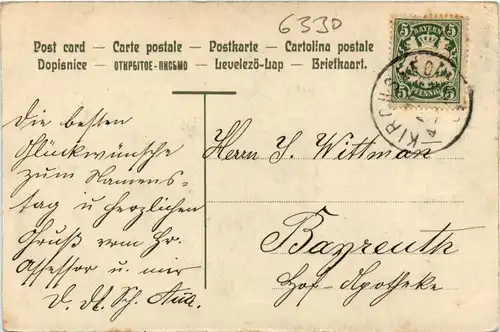 6330
Post card — Carte postale — Postkarte — Cartolina postale
Dopisnice — ОТКРЫТОЕ-ПИСЬМО — Levelezö-Lap — Briefkaart.
BAYERN
5 5
PFENNIG
KIRCH
Die besten
Glückwünsche
zum Namens-
tag u herzlichen
Gruß vom Hr.
Assessor u. mir
Herrn J. Wittman
Bayreuth
Hof-Apotheke